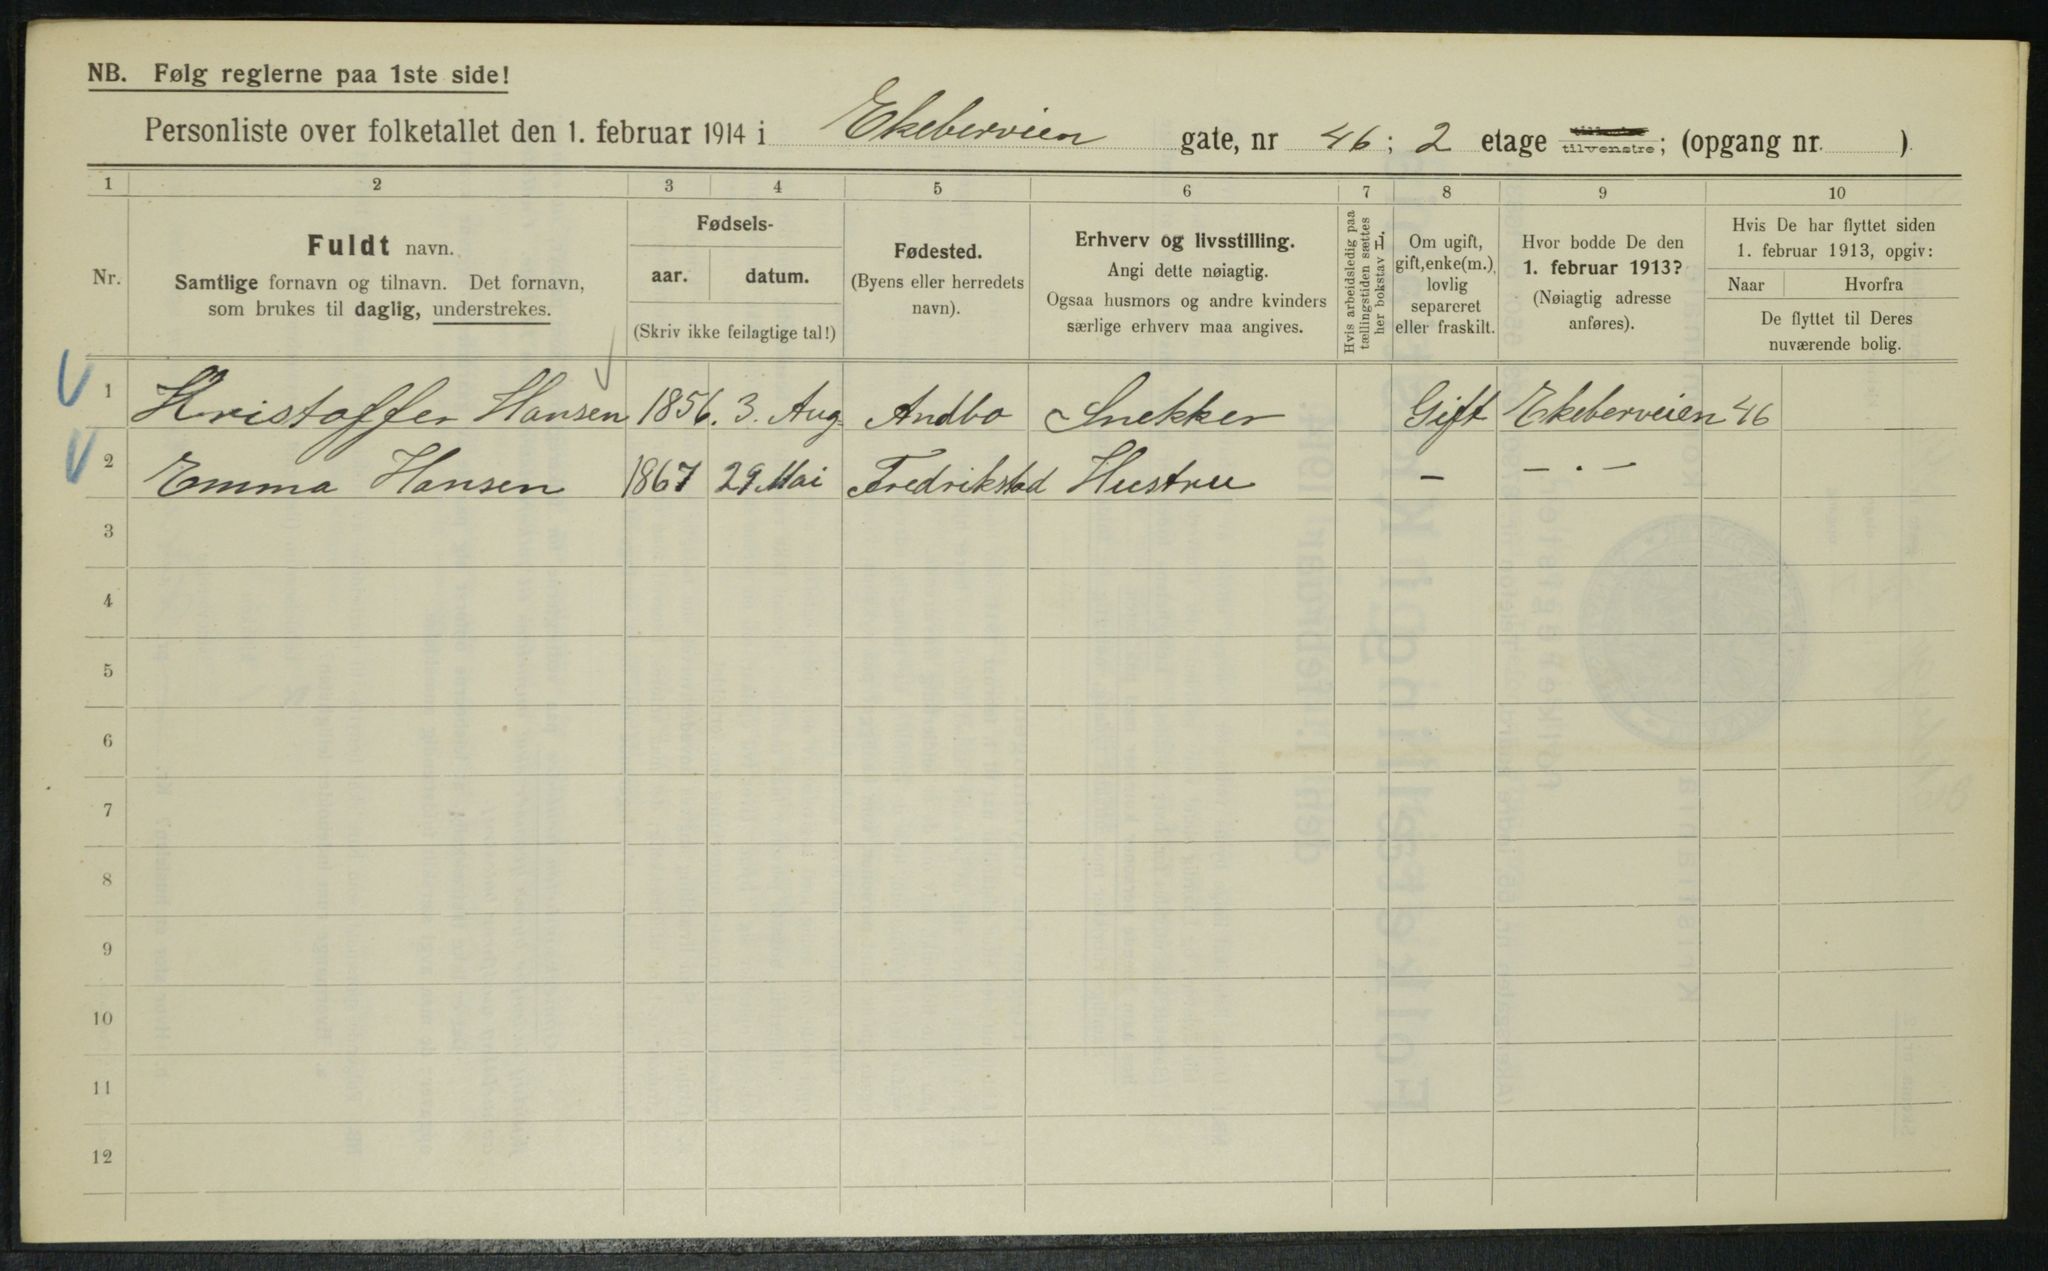 NB. Følg reglerne paa 1ste side!
Personliste over folketallet den 1. februar 1914 i Ekeberveien gate, nr 46; 2 etage tilvenstre; (opgang nr. )
1 2 3 4 5 6 7 8 9 10
Nr.
Fuldt navn.
Samtlige fornavn og tilnavn. Det fornavn,
som brukes til daglig, understrekes.
Fødsels-
aar. datum.
(Skriv ikke feilagtige tal!)
Fødested.
(Byens eller herredets
navn).
Erhverv og livsstilling.
Angi dette nøiagtig.
Ogsaa husmors og andre kvinders
særlige erhverv maa angives.
Hvis arbeidsledig paa
tællingstiden sættes
her bokstav L.
Om ugift,
gift, enke(m.),
lovlig
separeret
eller fraskilt.
Hvor bodde De den
1. februar 1913?
(Nøiagtig adresse
anføres).
Hvis De har flyttet siden
1. februar 1913, opgiv:
Naar Hvorfra
De flyttet til Deres
nuværende bolig.
1 Kristoffer Hansen 1856. 3. Aug. Andbo Snekker Gift Ekeberveien 46
2 Emma Hansen 1867 29 Mai Fredrikstad Hustru — — . —
3
4
5
6
7
8
9
10
11
12